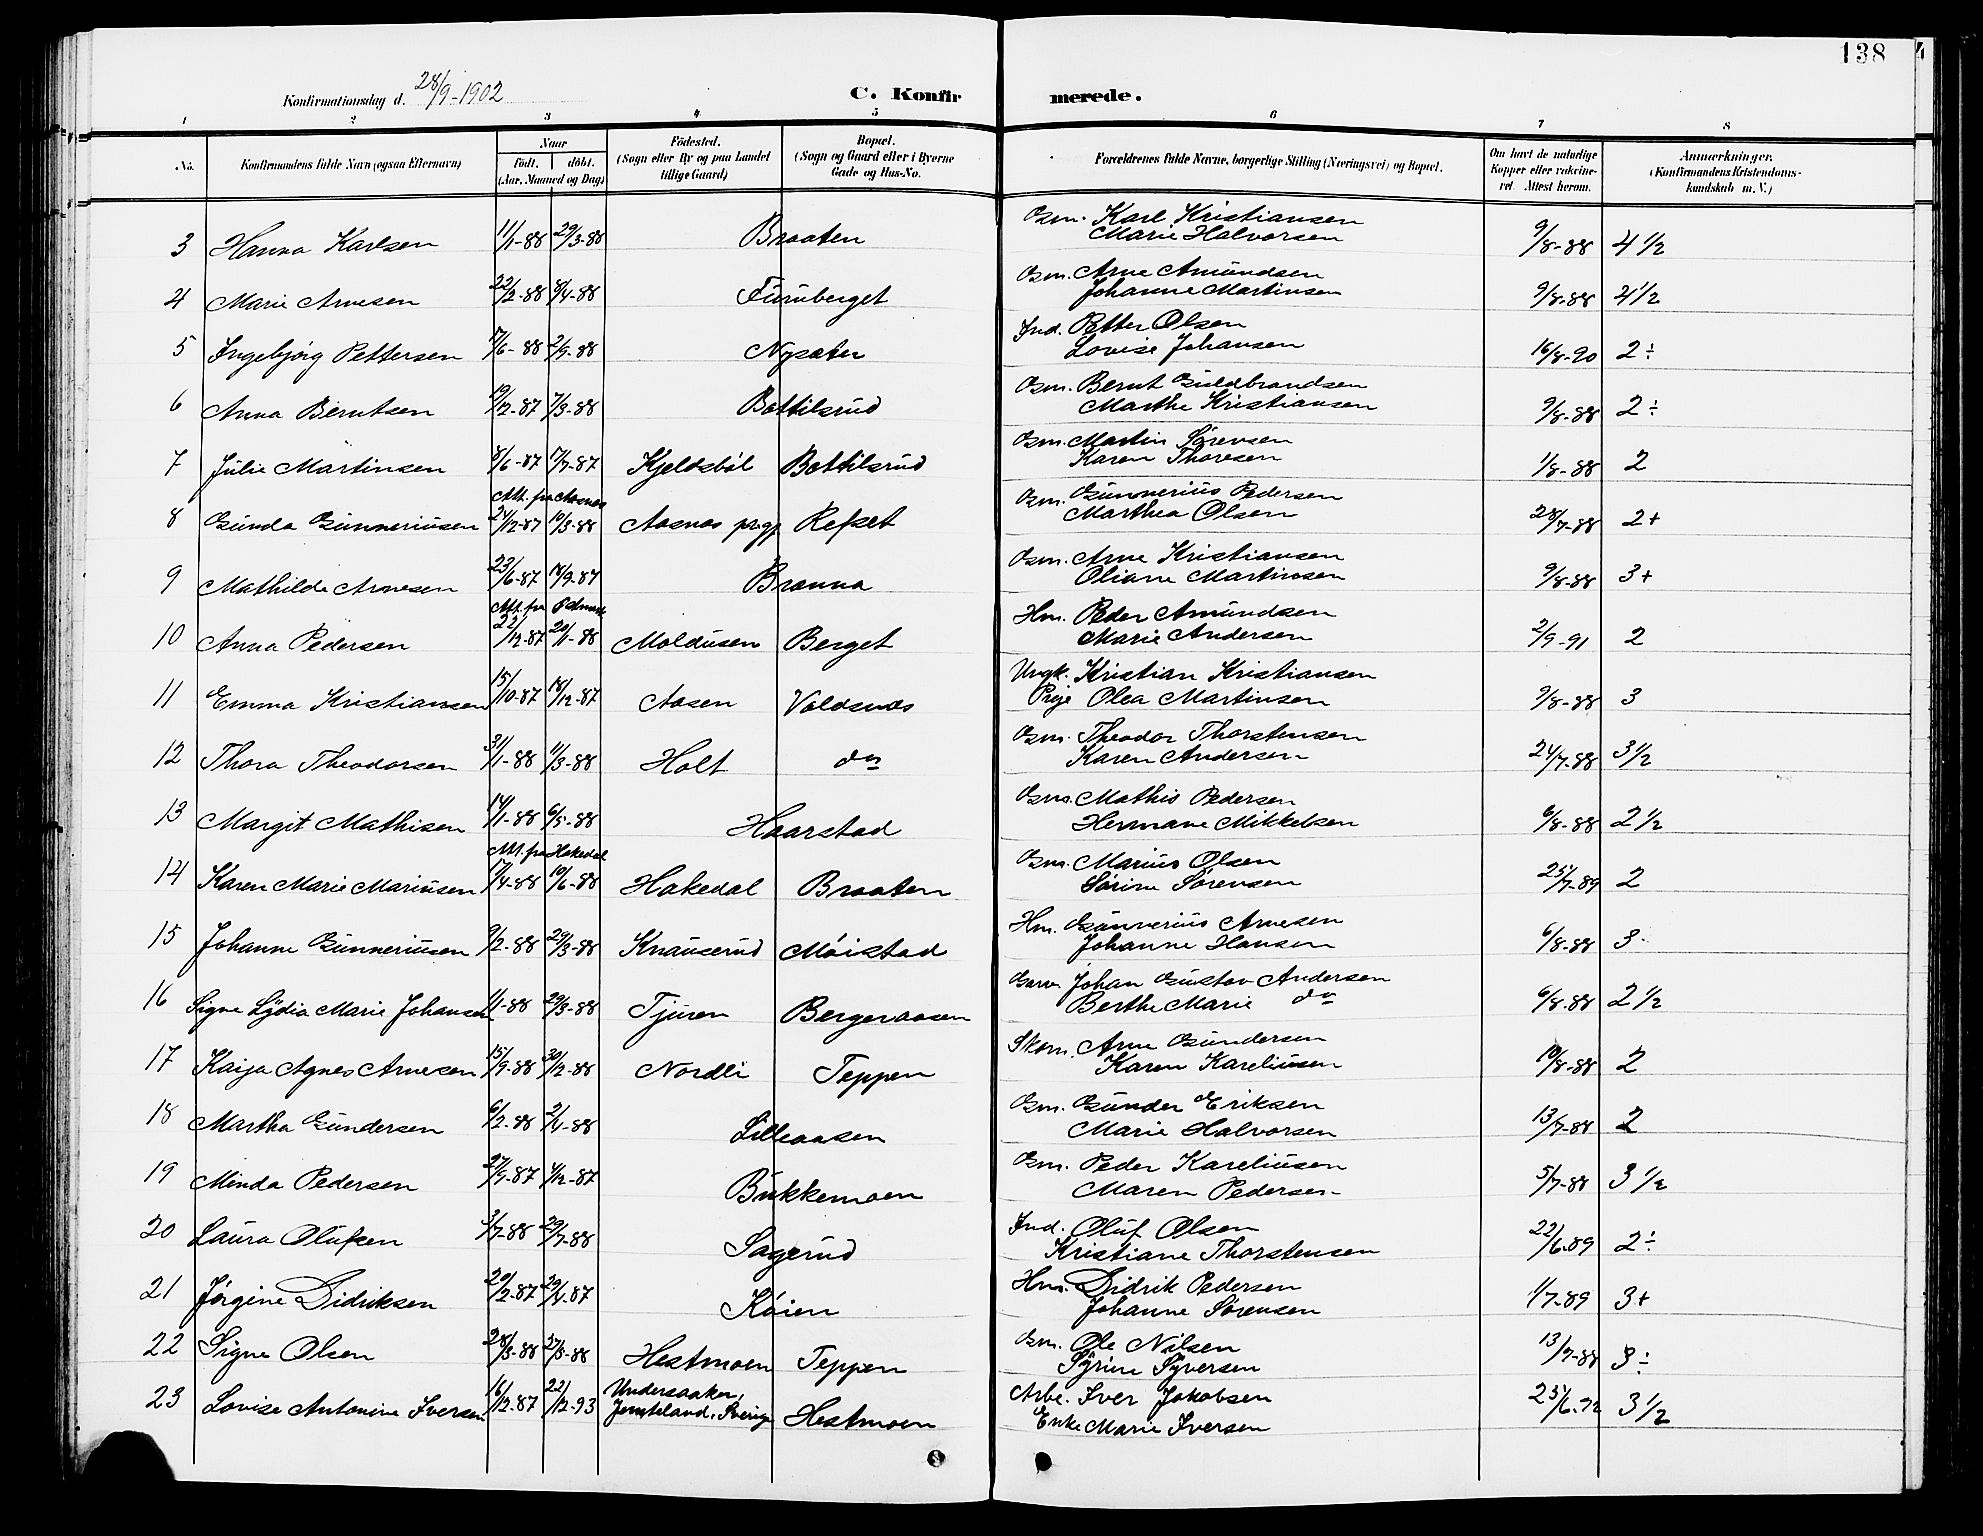 138
Konfirmationsdag d. 28/9-1902
C. Konfirmerede.
1 2 3 4 5 6 7 8
No. Konfirmandens fulde Navn (ogsaa Efternavn) Naar født. døbt. (Aar, Maaned og Dag) Födested. (Sogn eller By og paa Landet tillige Gaard) Bopæl. (Sogn og Gaard eller i Byerne Gade og Hus-No. Forældrenes fulde Navne, borgerlige Stilling (Næringsvei) og Bopæl. Om havt de naturlige Kopper eller vakcineret. Attest herom. Anmærkninger. (Konfirmandens Kristendomskundskab m. V.)
3 Hanna Karlsen 11/1-88 29/3-88 Braaten Gsm. Karl Kristiansen Marie Halvorsen 9/8-88 4 1/2
4 Marie Arnesen 22/2-88 8/4-88 Furuberget Gsm. Arne Amundsen Johanne Martinsen 9/8-88 4 1/2
5 Ingebjørg Pettersen 7/6-88 2/9-88 Nysater Ind. Petter Olsen Lovise Johansen 16/8-90 2÷
6 Anna Berntsen 19/12-87 7/3-88 Bottilsrud Gsm. Bernt Guldbrandsen Marthe Kristiansen 9/8-88 2÷
7 Julie Martinsen 8/6-87 17/7-87 Kjeldsbøl Bottilsrud Gsm. Martin Sørensen Karen Thoresen 1/8-88 2
Att. fra Aasnes
8 Gunda Gunneriusen 24/12-87 10/3-88 Aasnes prgj. Refset Gsm. Gunnerius Pedersen Marthea Olsen 28/7-88 2+
9 Mathilde Arnesen 23/6-87 18/9-87 Branna Gsm. Arne Kristiansen Oliane Martinsen 9/8-88 3+
Att. fra
10 Anna Pedersen 22/12-87 20/1-88 Moldusen Berget Hm. Peder Amundsen Marie Andersen 2/9-91 2
11 Emma Kristiansen 15/10-87 18/12-87 Aasen Voldsnæs Ungk. Kristian Kristiansen Pige Olea Martinsen 9/8-88 3
12 Thora Theodorsen 31/1-88 11/3-88 Holt do Gsm. Theodor Thorstensen Karen Andersen 24/7-88 3 1/2
13 Margit Mathisen 14/1-88 6/5-88 Haarstad Gsm. Mathis Pedersen Hermane Mikkelsen 6/8-88 2 1/2
Att. fra Hakedal
14 Karen Marie Mariusen 17/4-88 10/6-88 Hakedal Braaten Gsm. Marius Olsen Sørine Sørensen 25/7-89 2
15 Johanne Gunneriusen 9/2-88 29/3-88 Knauserud Møistad Hm. Gunnerius Arnesen Johanne Hansen 6/8-88 3
16 Signe Lydia Marie Johansen 1/1-88 29/3-88 Tjuren Bergeraasen Garv. Johan Gustav Andersen Berthe Marie do 6/8-88 2 1/2
17 Kaija Agnes Arnesen 15/9-88 30/12-88 Nordli Teppen Skom. Arne Gundersen Karen Kareliusen 10/8-88 2
18 Martha Gundersen 6/2-88 2/4-88 Lilleaasen Gsm. Gunder Eriksen Marie Halvorsen 13/7-88 2
19 Minda Pedersen 27/9-87 4/12-87 Bukkemoen Gsm. Peder Kareliusen Maren Pedersen 5/7-88 3 1/2
20 Laura Olufsen 3/7-88 29/7-88 Sagerud Ind. Oluf Olsen Kristiane Thorstensen 22/6-89 2÷
21 Jørgine Didriksen 20/2-87 29/4-87 Køien Hm. Didrik Pedersen Johanne Sørensen 1/7-89 3+
22 Signe Olsen 28/3-88 27/5-88 Hestmoen Teppen Gsm. Ole Nilsen Syrine Syversen 13/7-88 3÷
23 Lovise Antonine Iversen 16/12-87 22/12-93 Undersaaker, Jemteland, Sverige Hestmoen Arbe. Iver Jakobsen Enke Marie Iversen 25/6-72 3 1/2